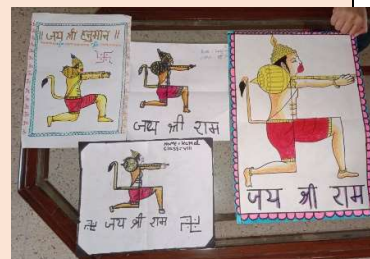 ॥ जय श्री हनुमान ॥
जय श्री राम
जय श्री राम
जय श्री राम